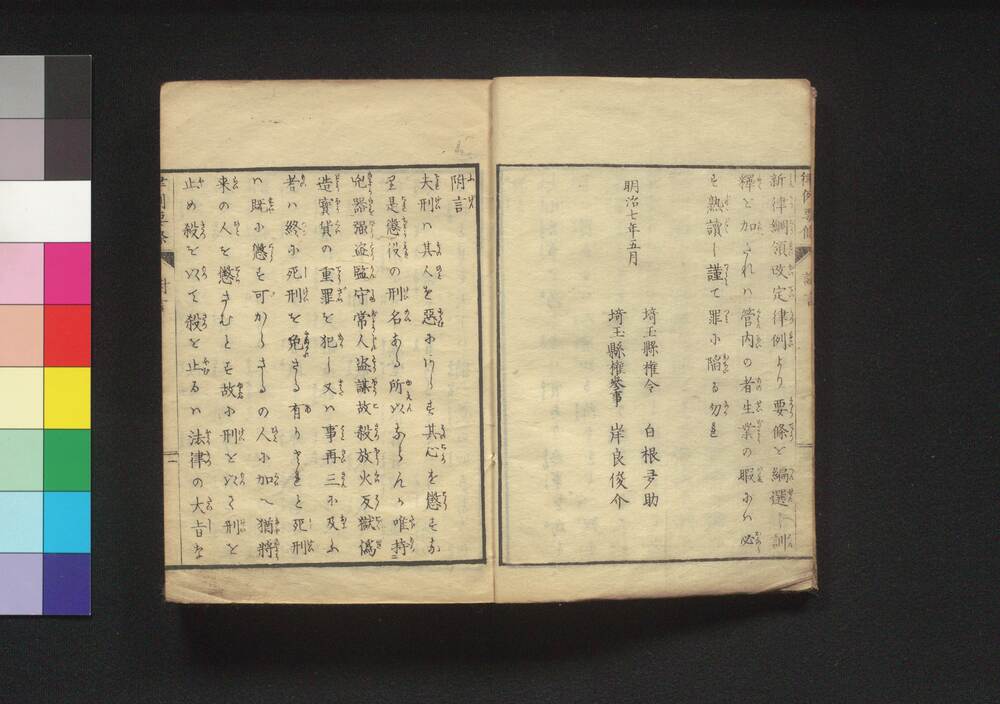 新律綱領改定律例より要條を編選し訓
釋を加されハ管内の者生業の暇にハ必
を熟讀し謹て罪に陥る勿れ
明治七年五月
埼玉縣権令　白根多助
埼玉縣権参事　岸良俊介
附言
夫刑ハ其人を惡にけらす其心を懲すな
り是懲役の刑名ある所以ならんか唯持
兇器强盗監守常人盗謀故殺放火反獄僞
造寳貨の重罪を犯し又ハ事再三に及ふ
者ハ終に死刑を免さる有りされと死刑
ハ既に懲を可からさるの人に加へ猶將
来の人を懲さむとす故に刑を以て刑を
止め殺を以て殺を止るハ法律の大旨な